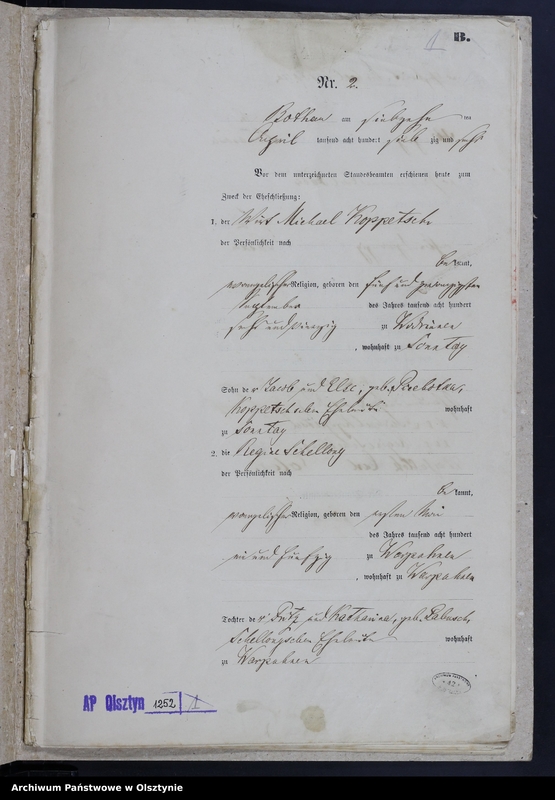 1 B.
Nr. 2.
Rothau am siebzehn ten
April tausend acht hundert sieb zig und sechs
Vor dem unterzeichneten Standesbeamten erschienen heute zum
Zweck der Eheschließung:
1. der Wirt Michael Koppetsch
der Persönlichkeit nach
be kannt,
evangelischer Religion, geboren den fünf und zwanzigsten
September des Jahres tausend acht hundert
sechs und vierzig zu
, wohnhaft zu Sonntag
Sohn der Jacob und Else, geb.
Koppetsch Eheleute wohnhaft
zu Sonntag
2. die Regine Schellong
der Persönlichkeit nach
be kannt,
evangelischer Religion, geboren den ersten Mai
des Jahres tausend acht hundert
ein und fünfzig zu Warpuhnen
, wohnhaft zu Warpuhnen
Tochter der und Katharina, geb.
Schellongschen Eheleute wohnhaft
zu Warpuhnen
AP Olsztyn 1252 1
Archiwum Państwowe w Olsztynie